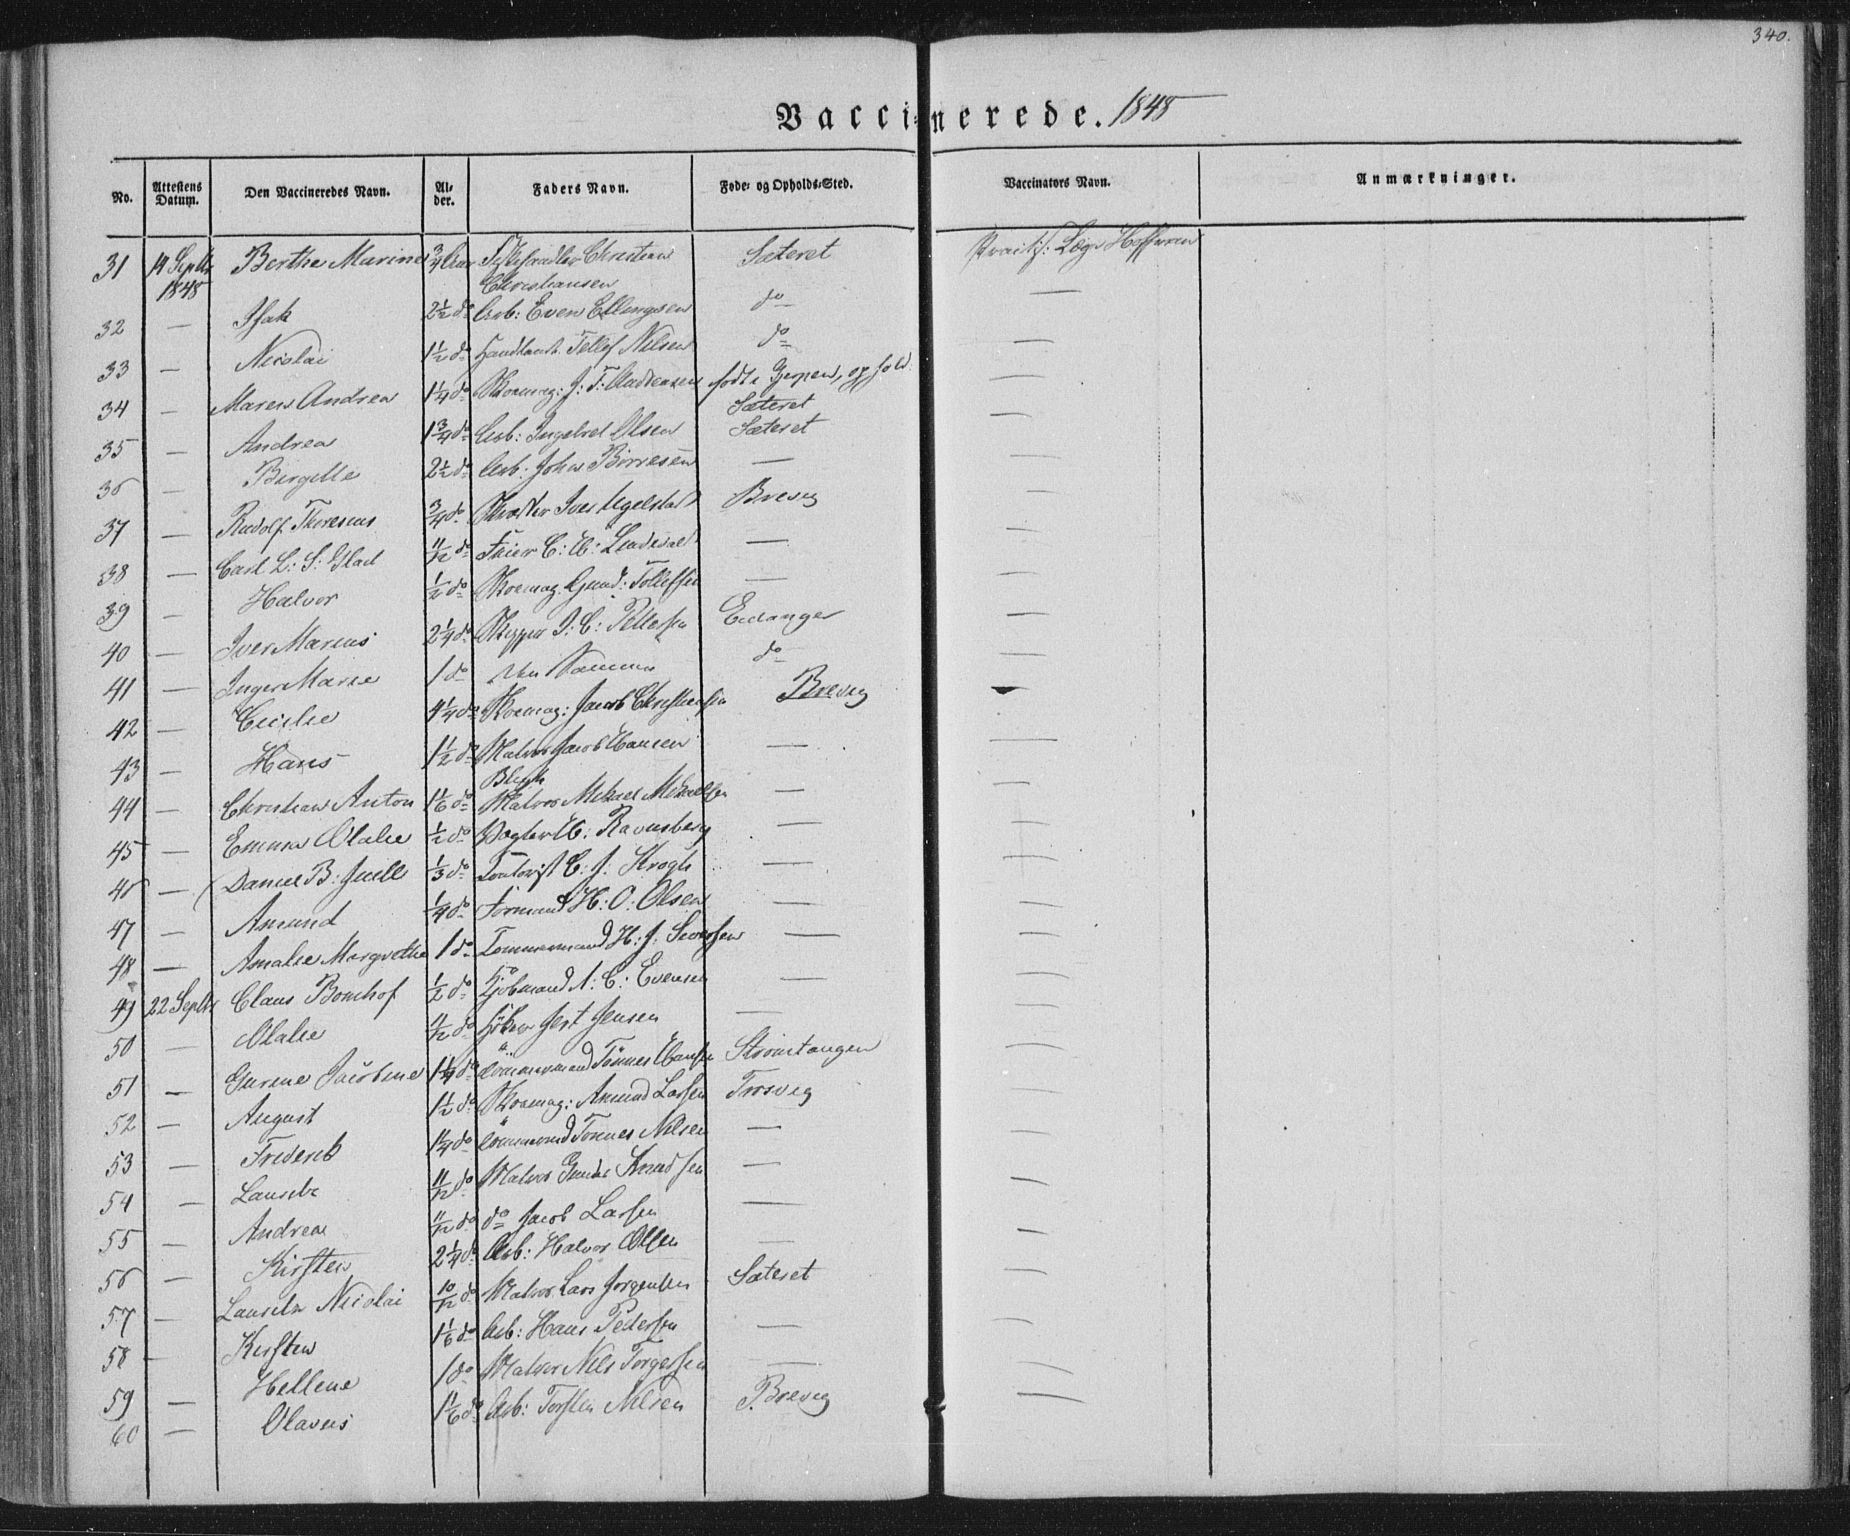 340.
Vaccinerede. 1848
No. Attestens Datum. Den Vaccineredes Navn. Alder. Faders Navn. Føde- og Opholds-Sted. Vaccinators Navn. Anmærkninger.
31 14 Septbr 1848 Berthe Marine 3/4 Aar Christian Christiansen Sæteret Practis: Læge Hoffman
32 — Isak 2 1/2 do Arb: Even Ellingsen do —
33 — Nicolai 1 1/2 do Tellef Nilsen do —
34 — Maren Andrea 1 1/4 do Skomag: J: T: Andreasen født i Gjerpen, ophold Sæteret —
35 — Andrea 1 3/4 do Arb: Ingebret Olsen Sæteret —
36 — Bergitte 2 1/2 do Arb: Johan Börresen — —
37 — Rudolf Thoresius 3/4 do Iver Ugelstad Brevig —
38 — Carl L: S: Glad 11/12 do — —
39 — Halvor 1/2 do Skomag. Gund: Tollefsen — —
40 — Iver Marius 2 1/4 do Skipper I: C: Pettersen Eidanger —
41 — Inger Marie 1 do den Samme do —
42 — Cecilie 4 1/4 do Skomag: Jacob Christensen Brevig —
43 — Hans 1 1/2 do Matros Jacob Hansen Blegh — —
44 — Christian Anton 1 1/6 do Matros Mikael Mikaelsen — —
45 — Emma Olalie 1/2 do H: Ravnsberg — —
46 — Daniel B: Juell 1/3 do C: J: Krogh — —
47 — Amund 1/4 do Formand H: O: Olsen — —
48 — Amalie Margrethe 1 do Tömmermand H: J: Sivertsen — —
49 22 Septbr Claus Bomhof 1/2 do Kjöbmand A: C: Evensen — —
50 — Olalie 11/12 do Jens Jensen — —
51 — Gurine Jacobine 1 1/4 do Tömmermand Tönnes Hansen Stromtangen —
52 — August 1 1/2 do Skomag: Amund Larsen Trosvig —
53 — Frederik 1 1/4 do Tömmermand Tönnes Nilsen — —
54 — Lauritz 11/12 do Matros Gunder Knudsen — —
55 — Andrea 11/12 do do Jacob Larsen — —
56 — Kirsten 2 1/4 do Arb: Halvor Olsen — —
57 — Lauritz Nicolai 10/12 do Matros Lars Jorgensen Sæteret —
58 — Kirsten 1 1/6 do Arb: Hans Pedersen — —
59 — Hellene 1 do Matros Nils Torgersen — —
60 — Olavus 1 1/6 do Arb: Torsten Nilsen Brevig —